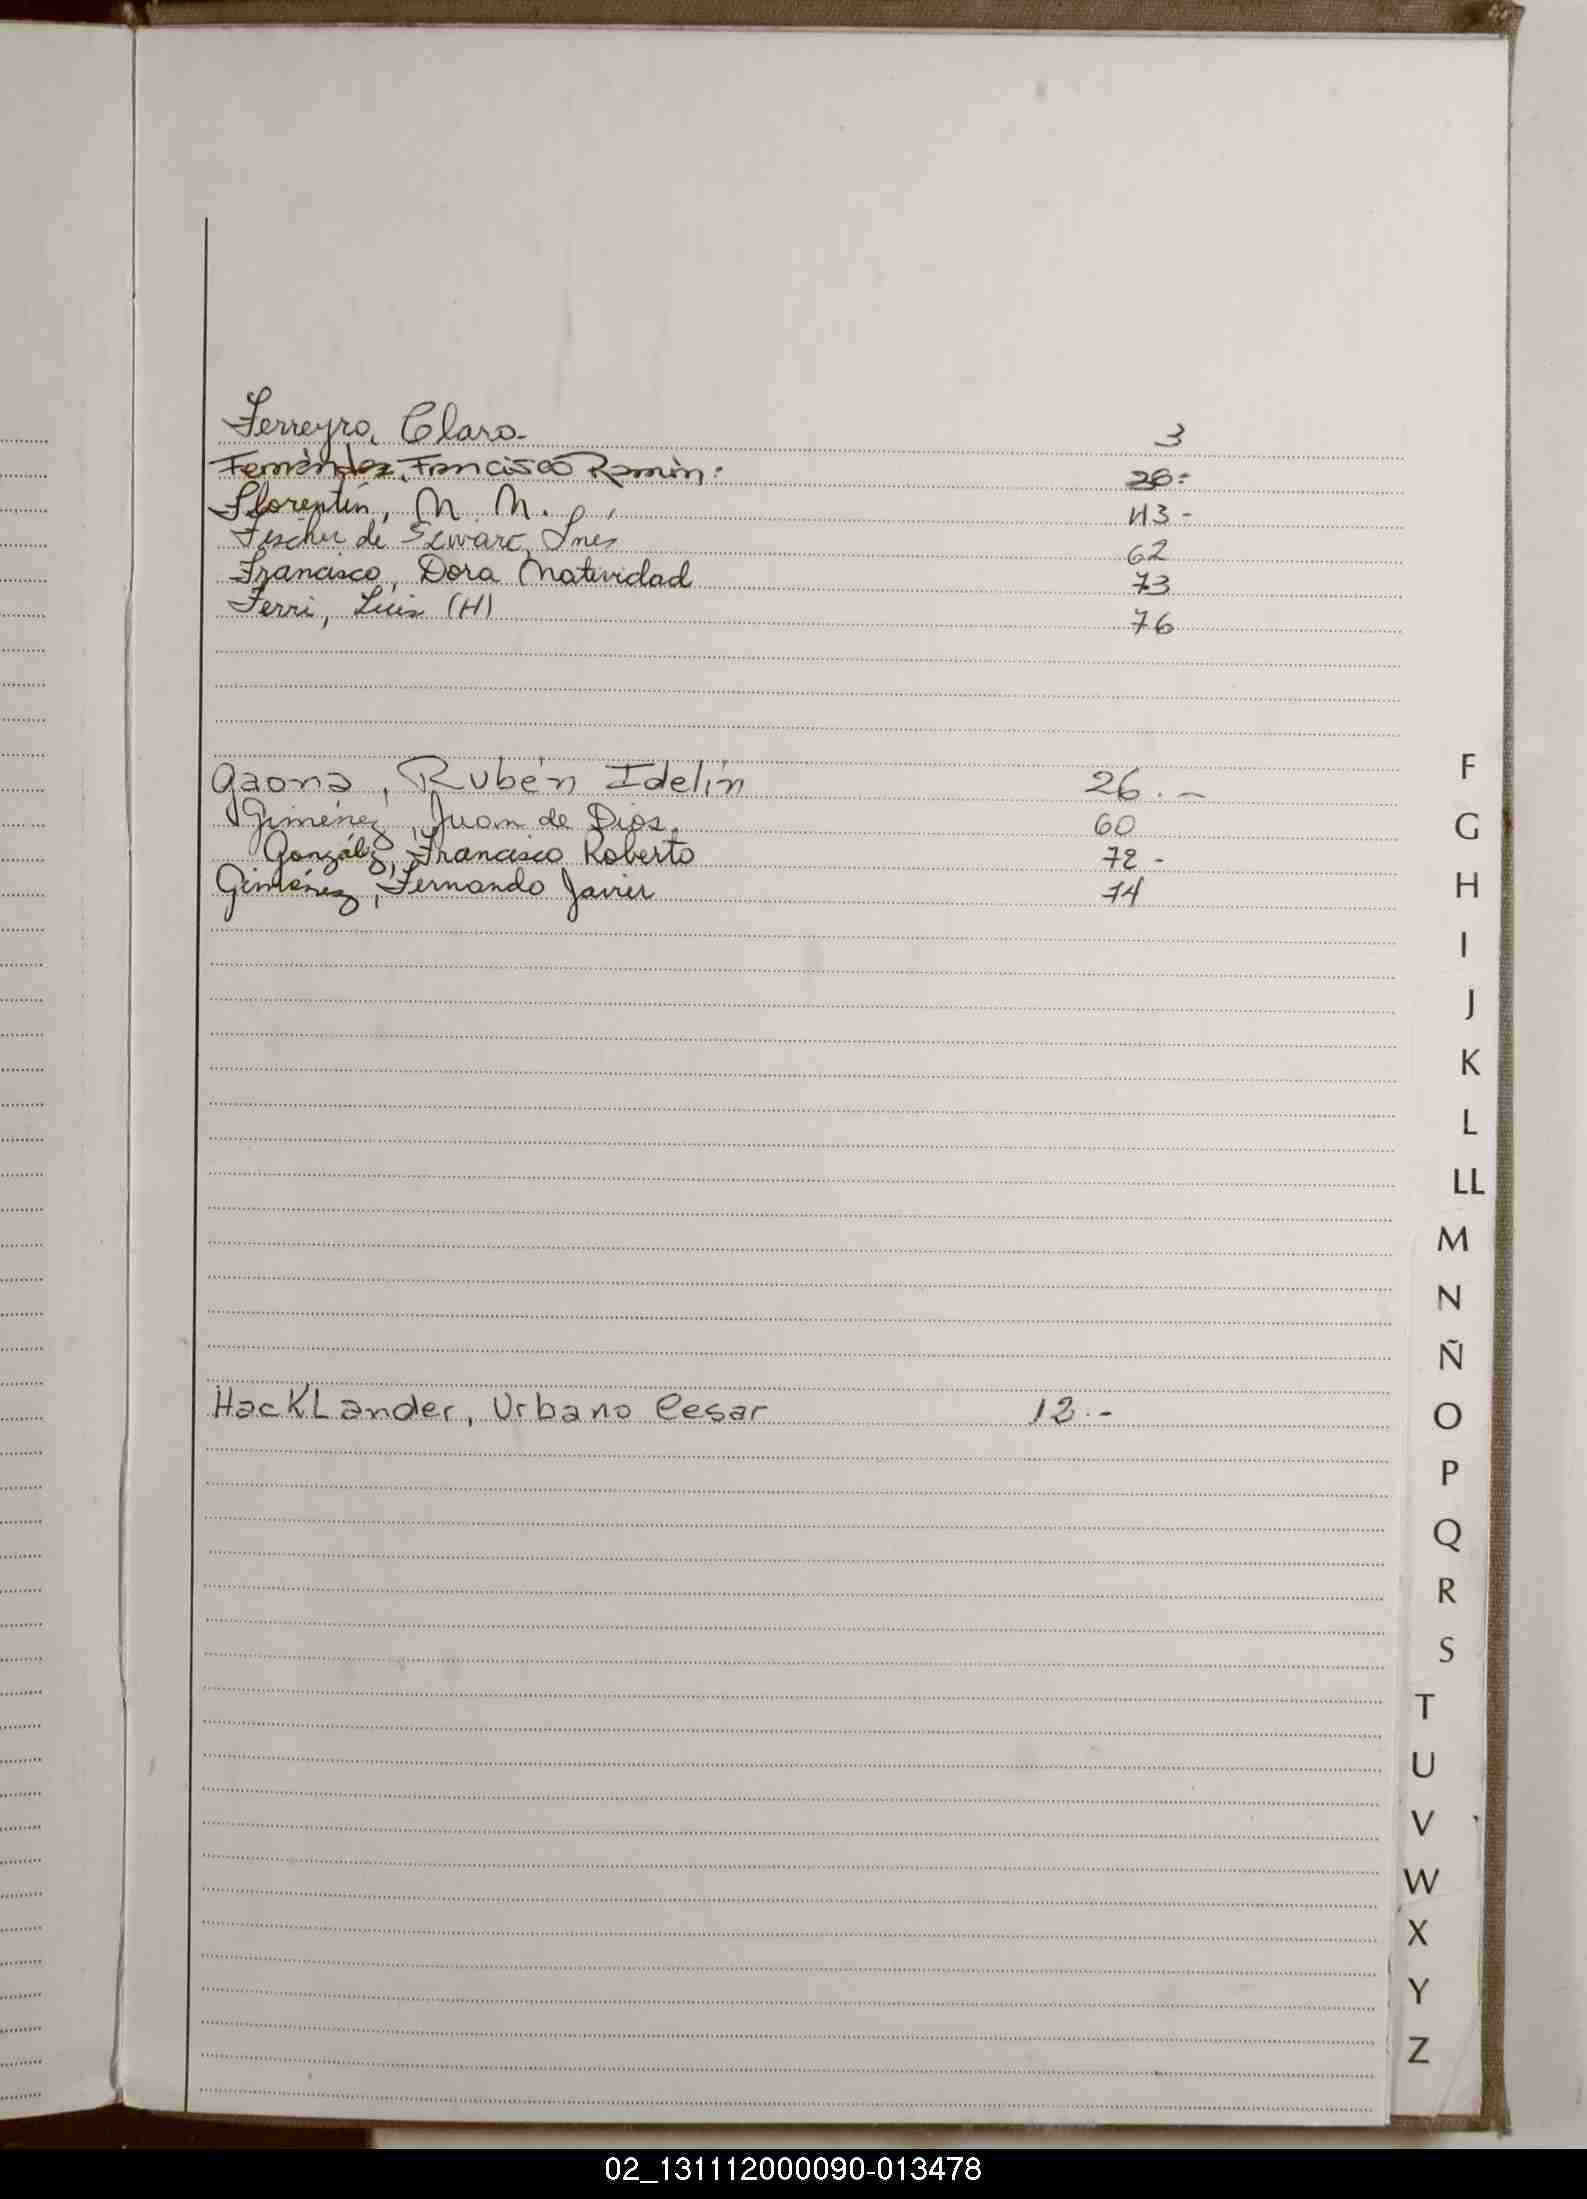 Ferreyro, Claro- 3
Fernández, Francisco Ramón: 26:
Florentín, N. N. 43-
Fischer de Szwarc, Inés 62
Francisco, Dora Natividad 73
Ferri, Luis (H) 76
Gaona, Rubén Idelín 26.-
Giménez, Juan de Dios. 60
González, Francisco Roberto 72-
Giménez, Fernando Javier 74
HackLander, Urbano Cesar 12.-
F
G
H
I
J
K
L
LL
M
N
Ñ
O
P
Q
R
S
T
U
V
W
X
Y
Z
02_131112000090-013478